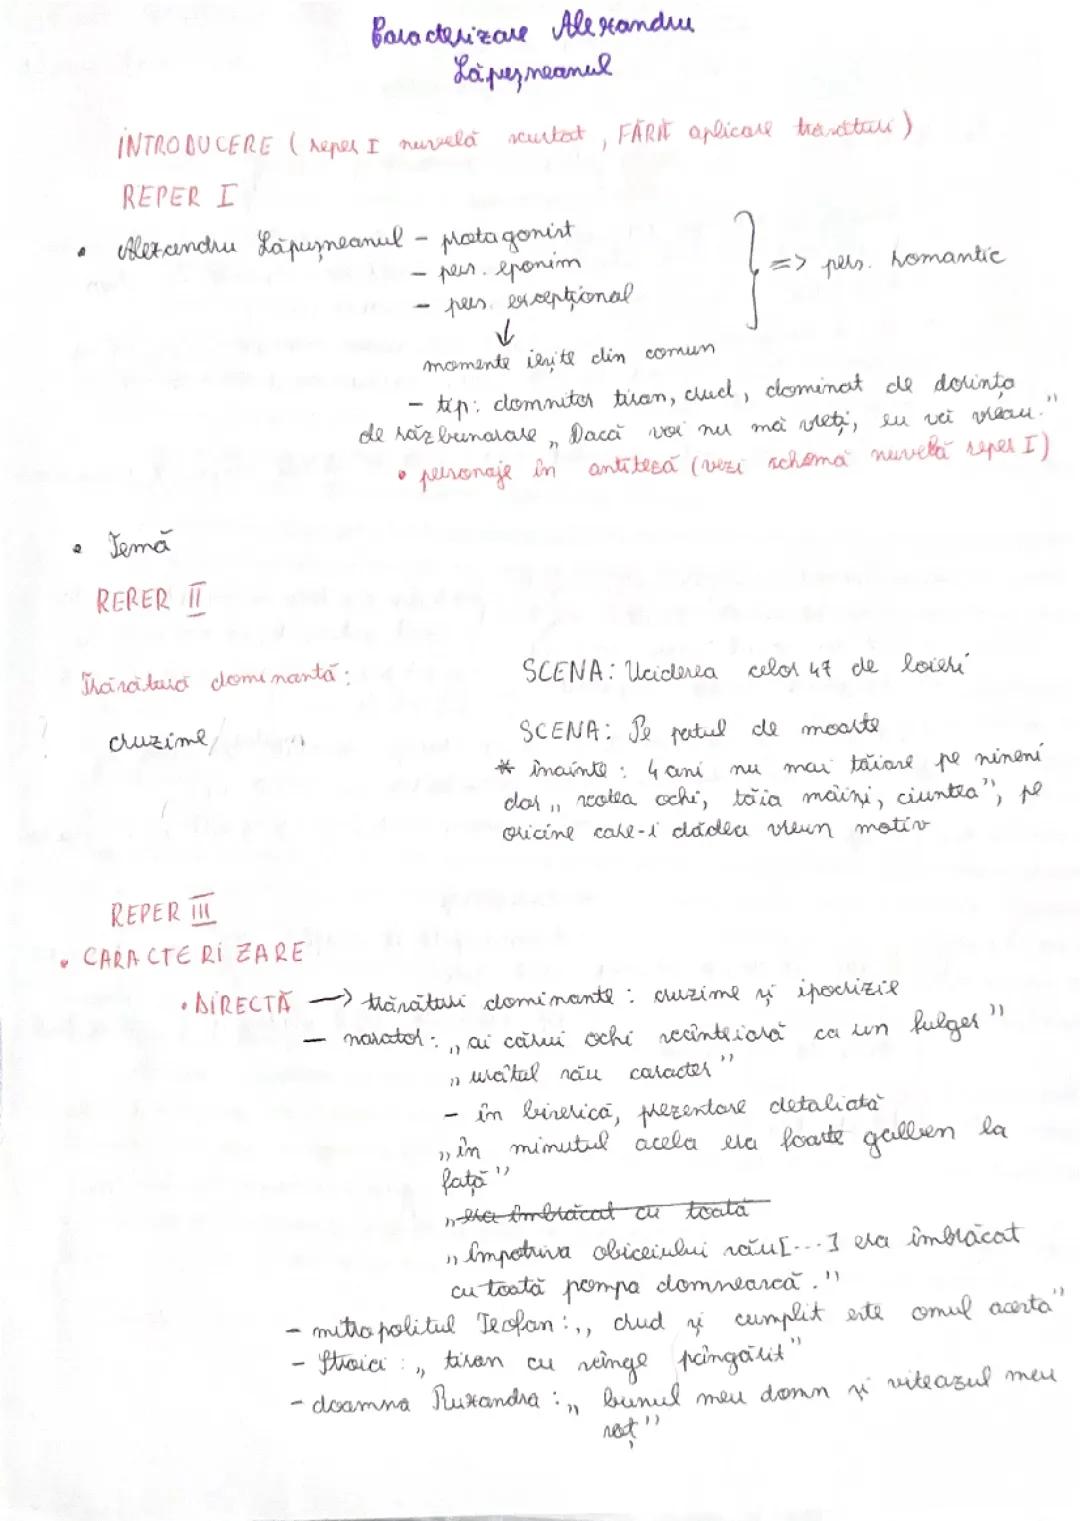 Caracterizare Alexandru
Lăpușneanul
INTRODUCERE ( reper I nuvelă scurtat , FĂRĂ aplicare trăsături )
REPER I
• Alexandru Lăpușneanul - protagonist
- pers. eponim
- pers. excepțional
=> pers. romantic
↓
momente ieșite din comun
- tip: domnitor tiran, crud, dominat de dorința
de răzbunarare „ Dacă voi nu mă vreți, eu vă vreau."
• personaje în antiteză (vezi schema nuvelă reper I)
• Temă
RERER II
Trăsătură dominantă:
cruzime
SCENA: Uciderea celor 47 de boieri
SCENA: Pe patul de moarte
* înainte : 4 ani nu mai tăiare pe nineni
dar „ scotea ochi, tăia mâini, ciuntea", pe
oricine care-i dădea vreun motiv
REPER III
• CARACTERIZARE
• DIRECTĂ → trăsături dominante : cruzime și ipocrizie
- narator : „ ai cărui ochi scânteiară ca un fulger "
„ urâtul său caracter "
- în biserică, prezentare detaliată
„ în minutul acela era foarte galben la
față "
„ era îmbrăcat cu toată
„ împotriva obiceiului său[...] era îmbrăcat
cu toată pompa domnească ."
- mitropolitul Teofan : „ crud și cumplit este omul acesta"
- Stroici : „ tiran cu sânge pângărit "
- doamna Ruxandra : „ bunul meu domn și viteazul meu
soț "